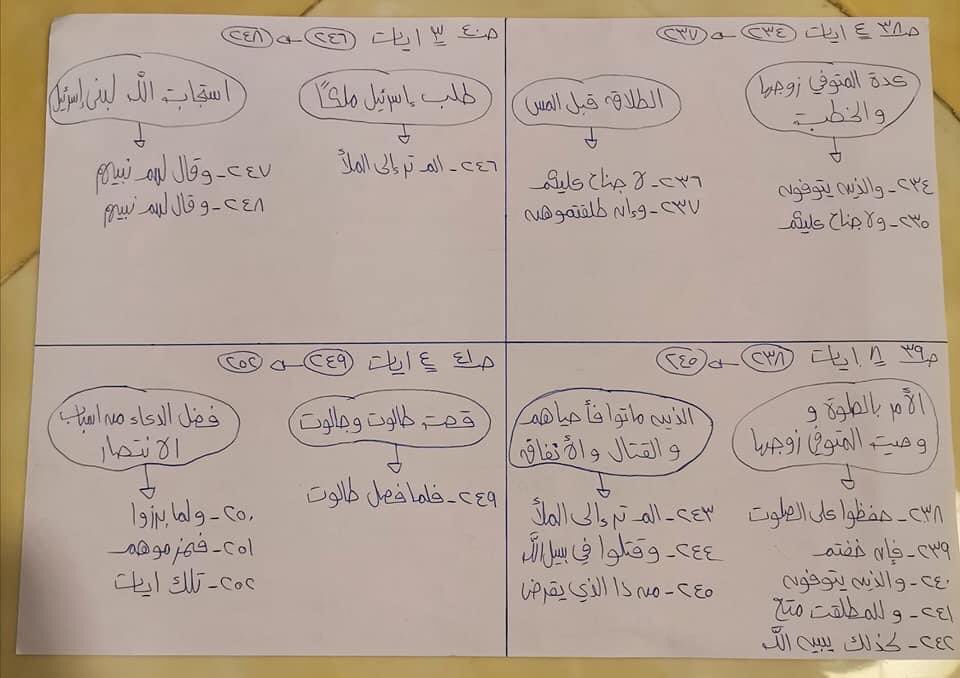 ص٣٨ ٤ ايات ٢٣٤ - ٢٣٧
عدة المتوفي زوجها
والخطبة
٢٣٤- والذين يتوفون
٢٣٥- ولا جناح عليكم
الطلاق قبل المس
٢٣٦- لا جناح عليكم
٢٣٧- وإن طلقتموهن
ص٤٠ ٣ ايات ٢٤٦ - ٢٤٨
طلب إسرئيل ملكاً
٢٤٦- الم تر إلى الملأ
استجابت الله لبني إسرئيل
٢٤٧- وقال لهم نبيهم
٢٤٨- وقال لهم نبيهم
ص٣٩ ٨ ايات ٢٣٨ - ٢٤٥
الأمر بالصلوة و
وصيت المتوفي زوجها
٢٣٨- حفظوا على الصلوت
٢٣٩- فإن خفتم
٢٤٠- والذين يتوفون
٢٤١- وللمطلقت متع
٢٤٢- كذلك يبين الله
الذين ماتوا فأحياهم
والقتال والأنفاق
٢٤٣- الم تر إلى الملأ
٢٤٤- وقتلوا في سبيل الله
٢٤٥- من ذا الذي يقرض
ص٤١ ٤ ايات ٢٤٩ - ٢٥٢
قصت طالوت وجالوت
٢٤٩- فلما فصل طالوت
فضل الدعاء من اسباب
الانتصار
٢٥٠- ولما برزوا
٢٥١- فهزموهم
٢٥٢- تلك ايات